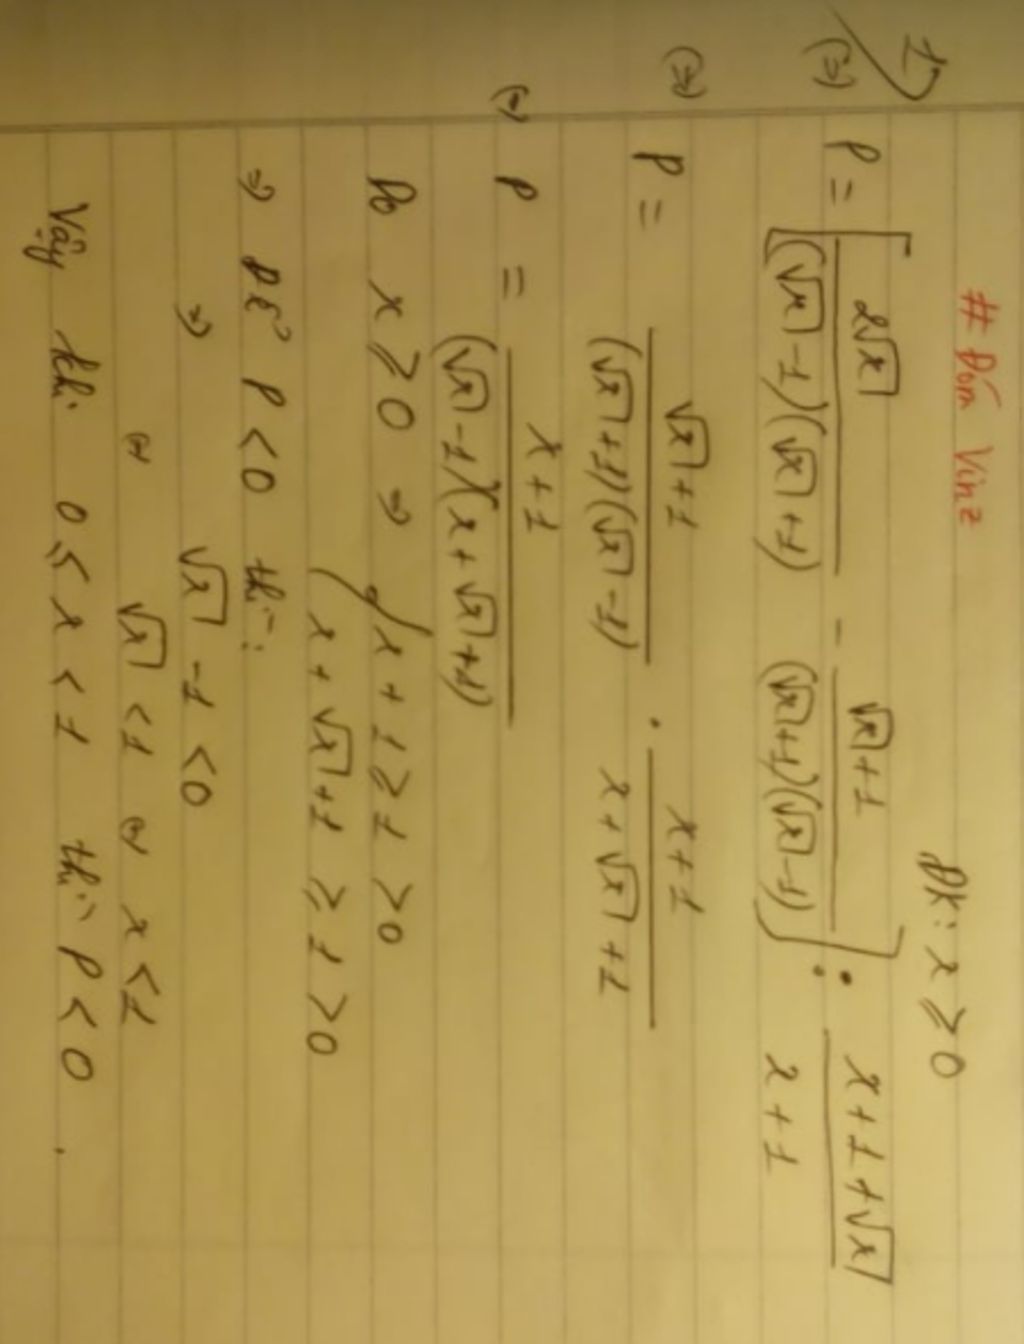 # Đom Vinz
ĐK: x ≥ 0
1)
(=) P = [ 2√x / (√x - 1)(√x + 1) - √x + 1 / (√x + 1)(√x - 1) ] : x + 1 + √x / x + 1
(=) P = √x + 1 / (√x + 1)(√x - 1) . x + 1 / x + √x + 1
(=) P = x + 1 / (√x - 1)(x + √x + 1)
Do x ≥ 0 => { x + 1 ≥ 1 > 0
x + √x + 1 ≥ 1 > 0
=> Để P < 0 thì:
=> √x - 1 < 0
(=) √x < 1 (=) x < 1
Vậy khi 0 ≤ x < 1 thì P < 0 .